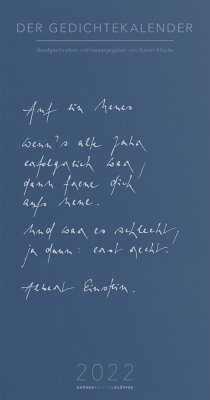 DER GEDICHTEKALENDER
Handgeschrieben und herausgegeben von Hubert Klöpfer
Auf ein Neues
wenn's alte Jahr
erfolgreich war,
dann freue dich
aufs neue.
und war es schlecht,
ja dann: erst recht.
Albert Einstein.
2022
KRÖNEREDITIONKLÖPFER